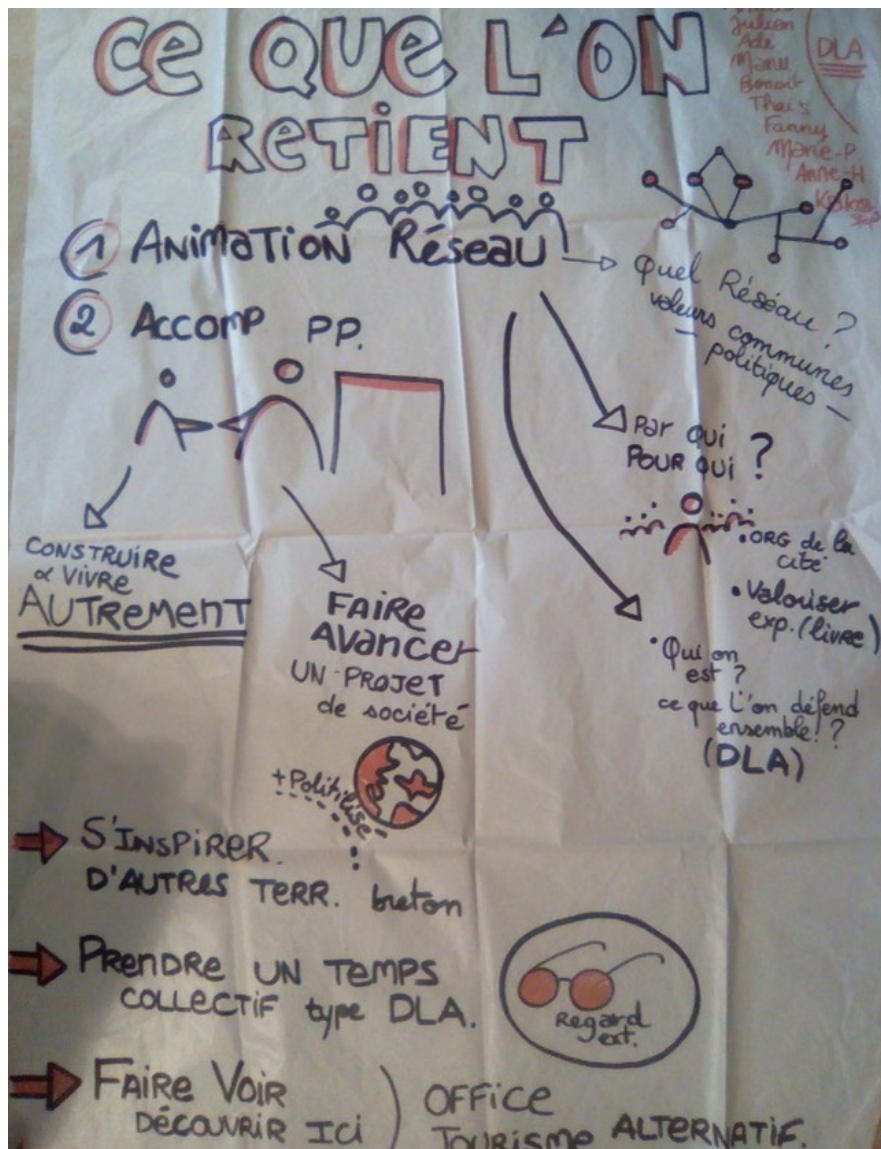 CE QUE L'ON
RETIENT
Julien
Ade
Manu
Benoit
Thaïs
Fanny
Marie-P
Anne-H
DLA
1 ANIMATION Réseau
Quel Réseau ?
valeurs communes
– politiques –
2 ACCOMP PP.
Par qui
POUR QUI ?
• ORG de la
cité
• Valoriser
exp. (livre)
• Qui on
est ?
ce que l'on défend
ensemble ! ?
(DLA)
CONSTRUIRE
& VIVRE
AUTREMENT
FAIRE
AVANCER
UN PROJET
de société
+ Politilise
S'INSPIRER.
D'AUTRES TERR. breton
PRENDRE UN TEMPS
COLLECTIF type DLA.
Regard
ext.
FAIRE VOIR
DÉCOUVRIR ICI
OFFICE
TOURISME ALTERNATIF.